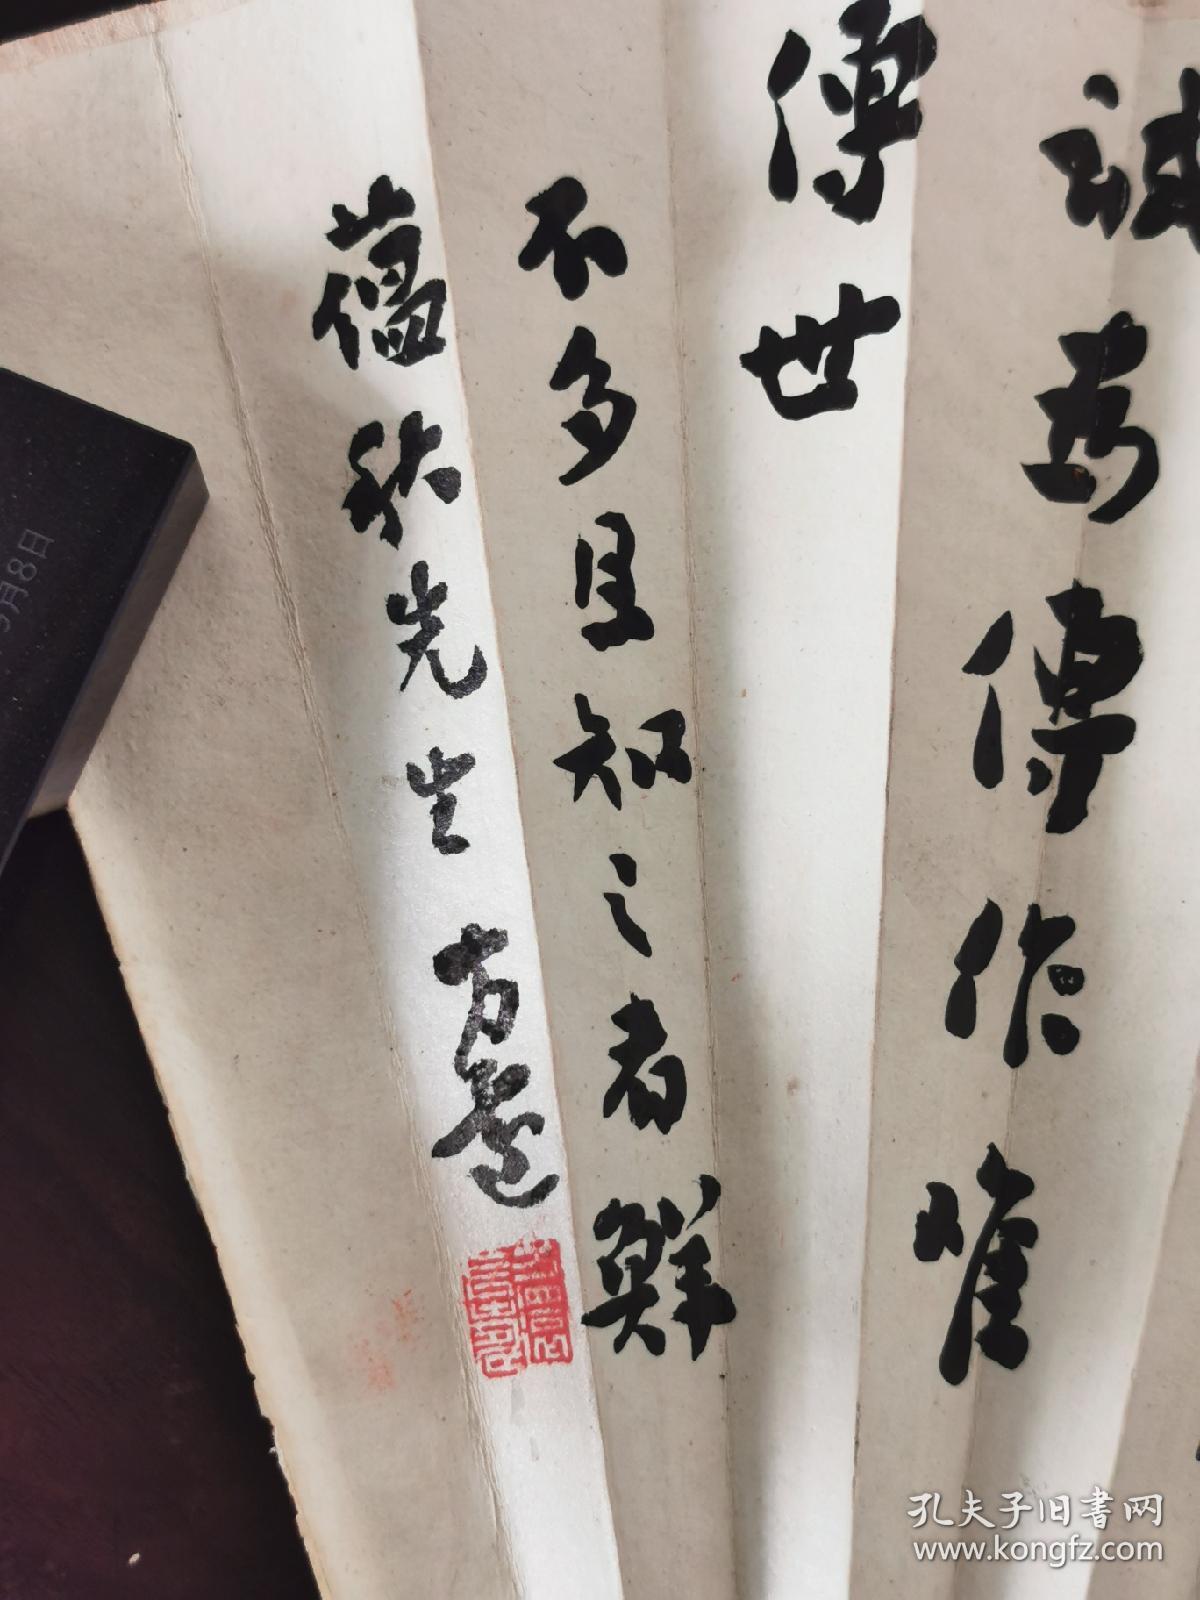 誠為傳作惟
傳世
不多且知之者鮮
蘊秋先生 方
月8日
孔夫子旧书网
www.kongfz.com